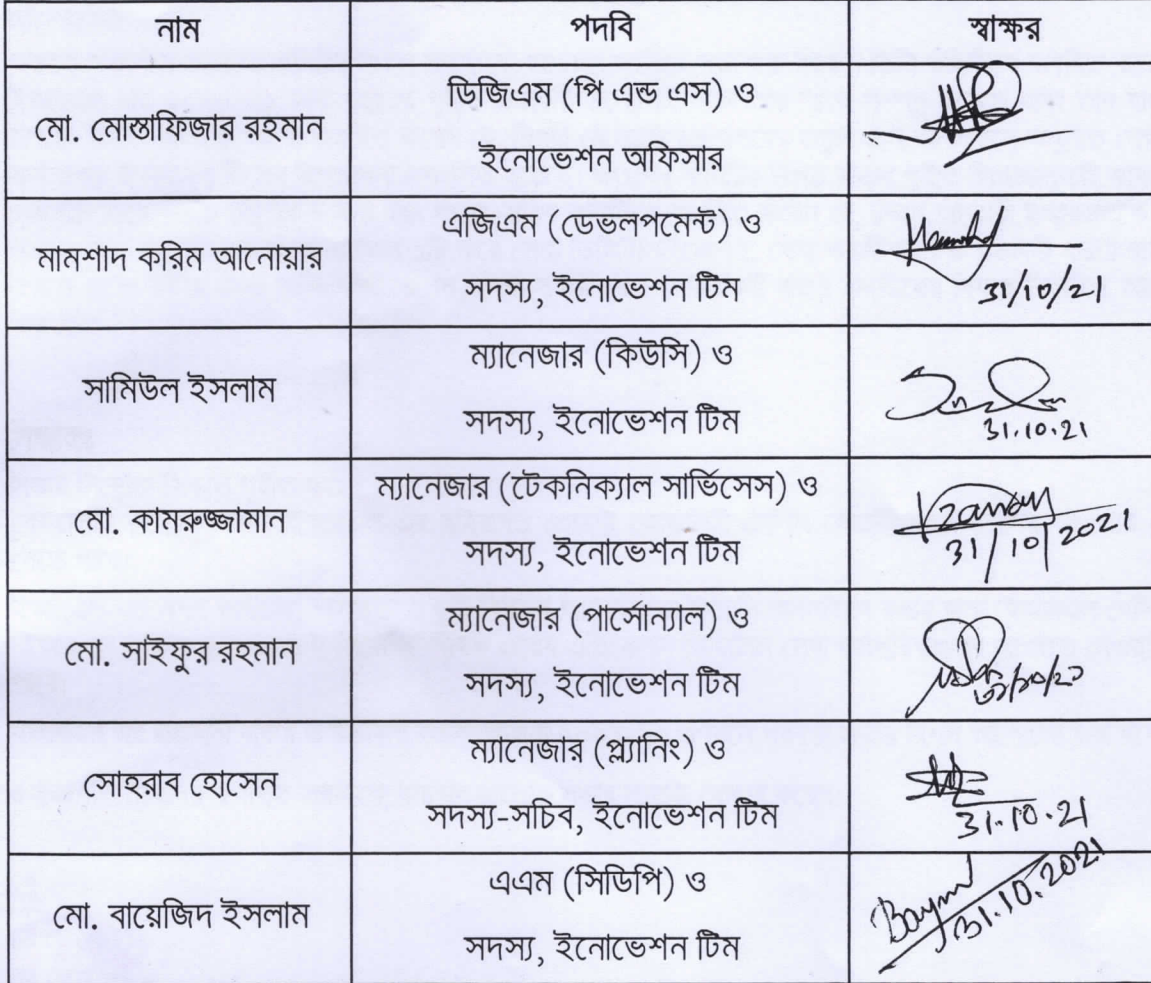 নাম পদবি স্বাক্ষর
মো. মোস্তাফিজার রহমান
ডিজিএম (পি এন্ড এস) ও
ইনোভেশন অফিসার
মামশাদ করিম আনোয়ার
এজিএম (ডেভলপমেন্ট) ও
সদস্য, ইনোভেশন টিম
31/10/21
সামিউল ইসলাম
ম্যানেজার (কিউসি) ও
সদস্য, ইনোভেশন টিম
31.10.21
মো. কামরুজ্জামান
ম্যানেজার (টেকনিক্যাল সার্ভিসেস) ও
সদস্য, ইনোভেশন টিম
31/10/2021
মো. সাইফুর রহমান
ম্যানেজার (পার্সোন্যাল) ও
সদস্য, ইনোভেশন টিম
সোহরাব হোসেন
ম্যানেজার (প্ল্যানিং) ও
সদস্য-সচিব, ইনোভেশন টিম
31.10.21
মো. বায়েজিদ ইসলাম
এএম (সিডিপি) ও
সদস্য, ইনোভেশন টিম
31.10.2021